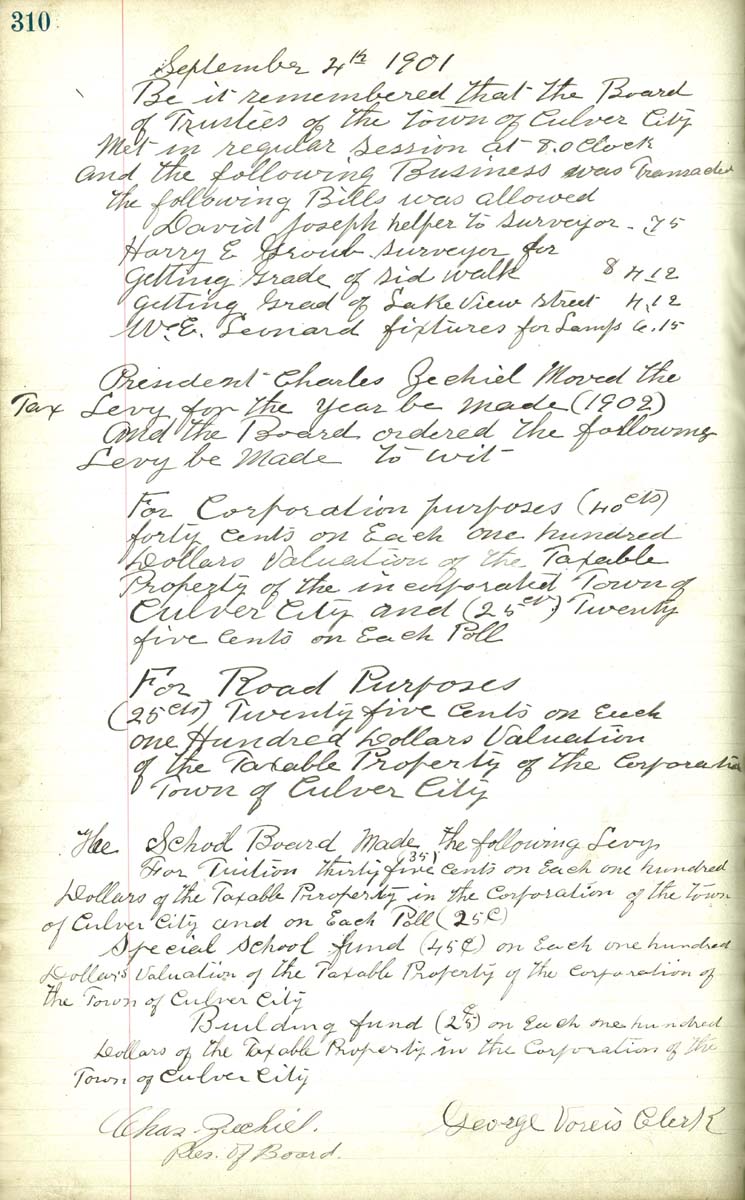 310
September 4th 1901
Be it remembered that the Board
of Trusties of the Town of Culver City
Met in regular session at 8.0 Clock
and the following Business was Transacted
the following Bills was allowed
David Joseph helper to Surveyor - .75
Harry E Groub surveyor for
getting grade of sid walk $ 4.12
getting Grad of Lake View street 4.12
Wm E. Leonard fixtures for Lamps 6.15
President Charles Zechiel Moved the
Tax Levy for the Year be made (1902)
and the Board ordered the following
Levy be Made to wit
For Corporation purposes (40cts)
forty cents on Each one hundred
Dollars Valuation of the Taxable
Property of the incorporated Town of
Culver City and (25cts) Twenty
five Cents on Each Poll
For Road Purposes
(25cts) Twenty five Cents on Each
one Hundred Dollars Valuation
of the Taxable Property of the Corporation
Town of Culver City
The School Board Made the following Levy
For Tuition thirty five (35) cents on Each one hundred
Dollars of the Taxable Prroperty in the Corporation of the Town
of Culver City and on Each Poll (25c)
Special School fund (45c) on Each one hundred
Dollars Valuation of the Taxable Property of the Corporation of
the Town of Culver City
Building fund (25c) on Each one hundred
Dollars of the Taxable Property in the Corporation of the
Town of Culver City
Chas. Zechiel. George Voreis Clerk
Pres. of Board.